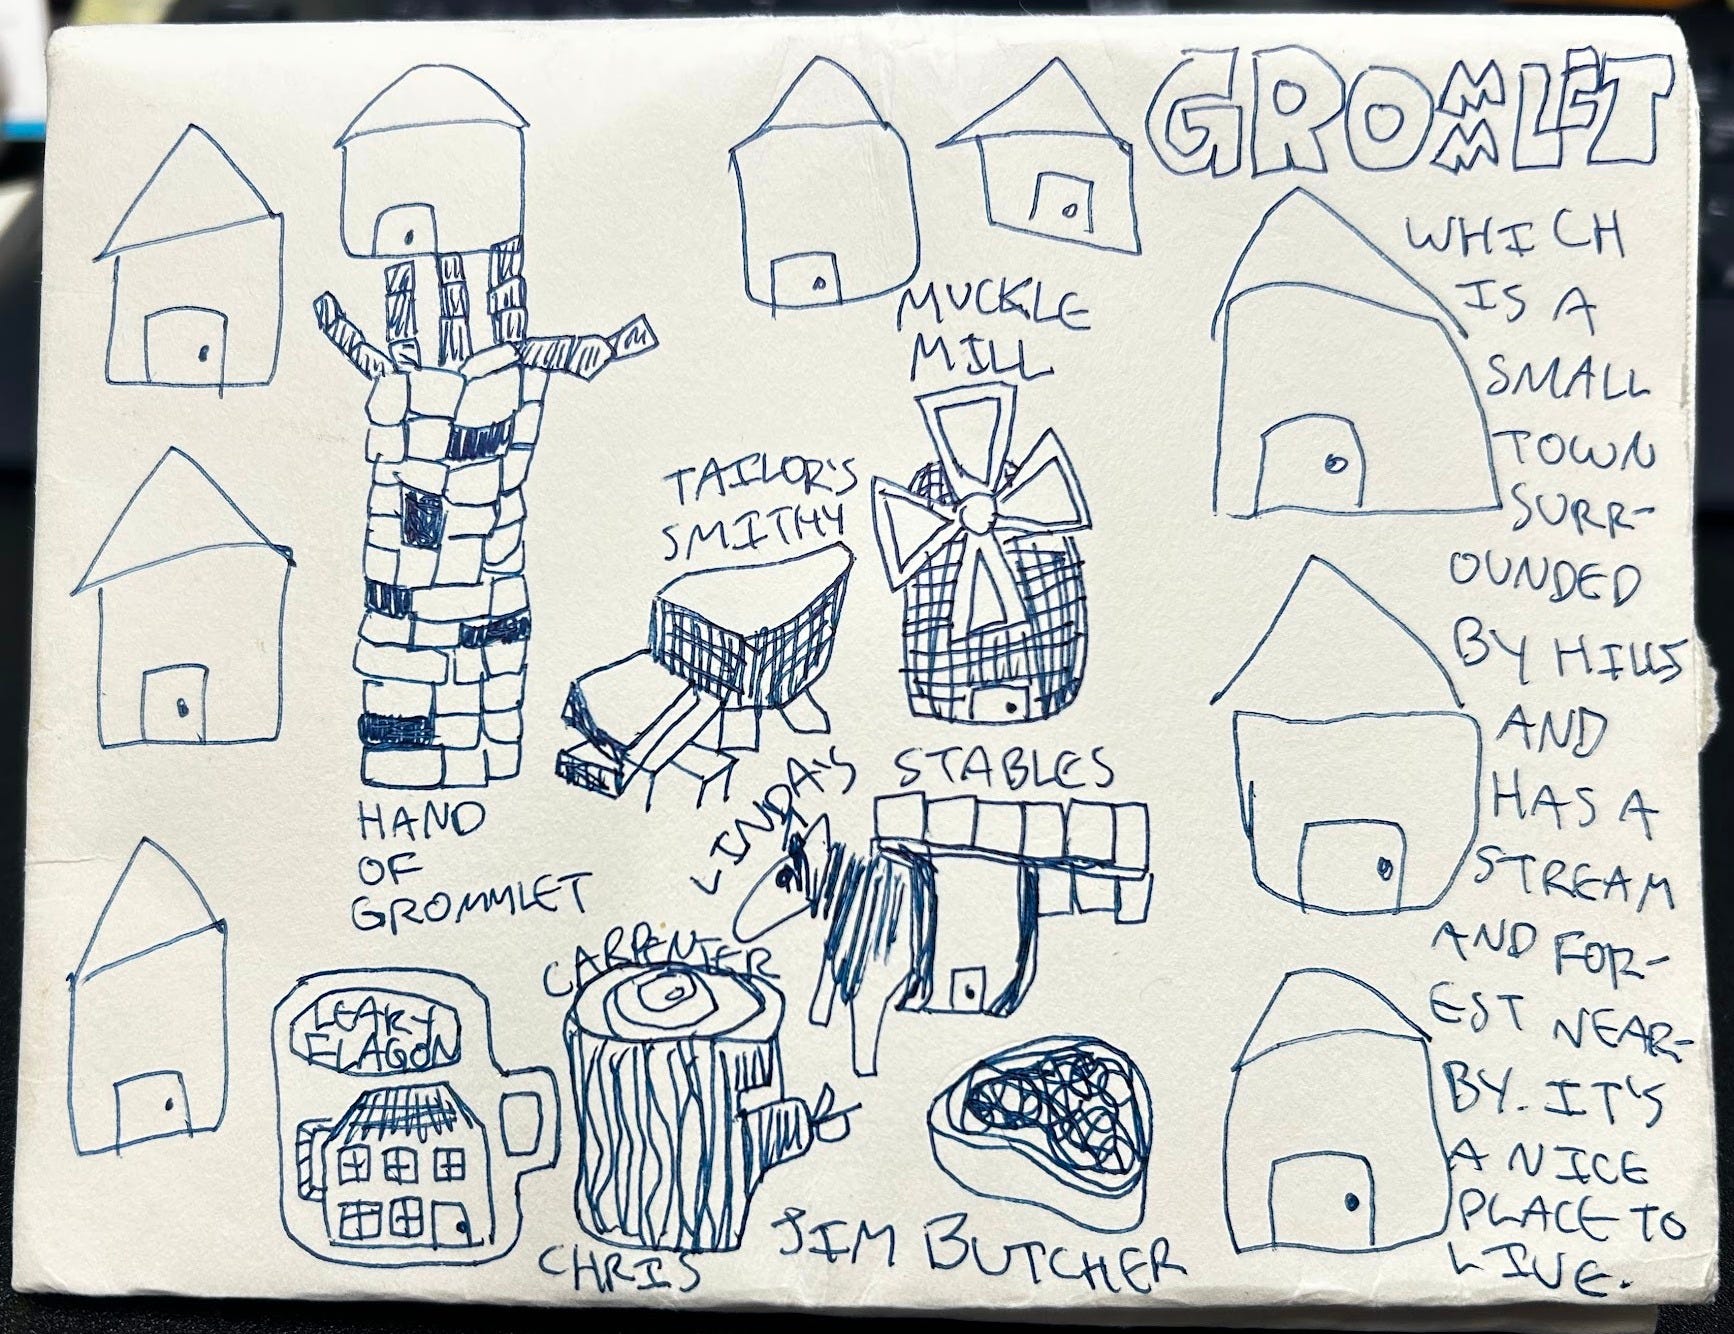 GROMMLET
WHICH
IS A
SMALL
TOWN
SURR-
OUNDED
BY HILLS
AND
HAS A
STREAM
AND FOR-
EST NEAR-
BY. IT'S
A NICE
PLACE TO
LIVE.
MUCKLE
MILL
TAILOR'S
SMITHY
HAND
OF
GROMMLET
LINDA'S STABLES
LEAKY
FLAGON
CARPENTER
CHRIS
JIM BUTCHER